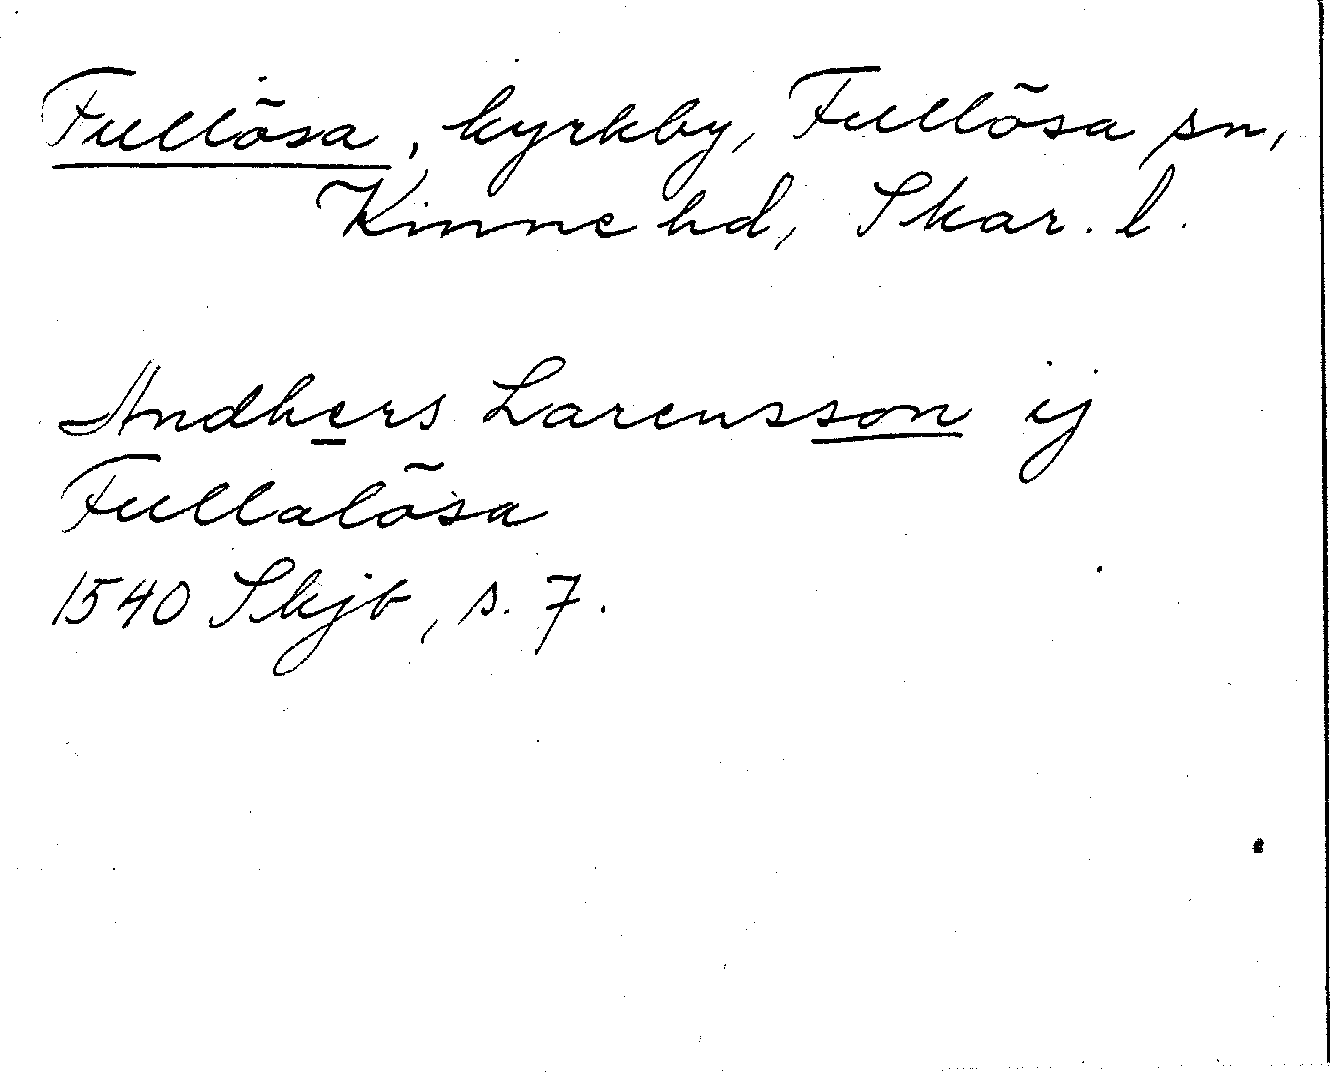 Fullösa, kyrkby, Fullösa sn,
Kinne hd, Skar. l.
Andhers Larensson ij
Fullalösa
1540 Skjb, s. 7.